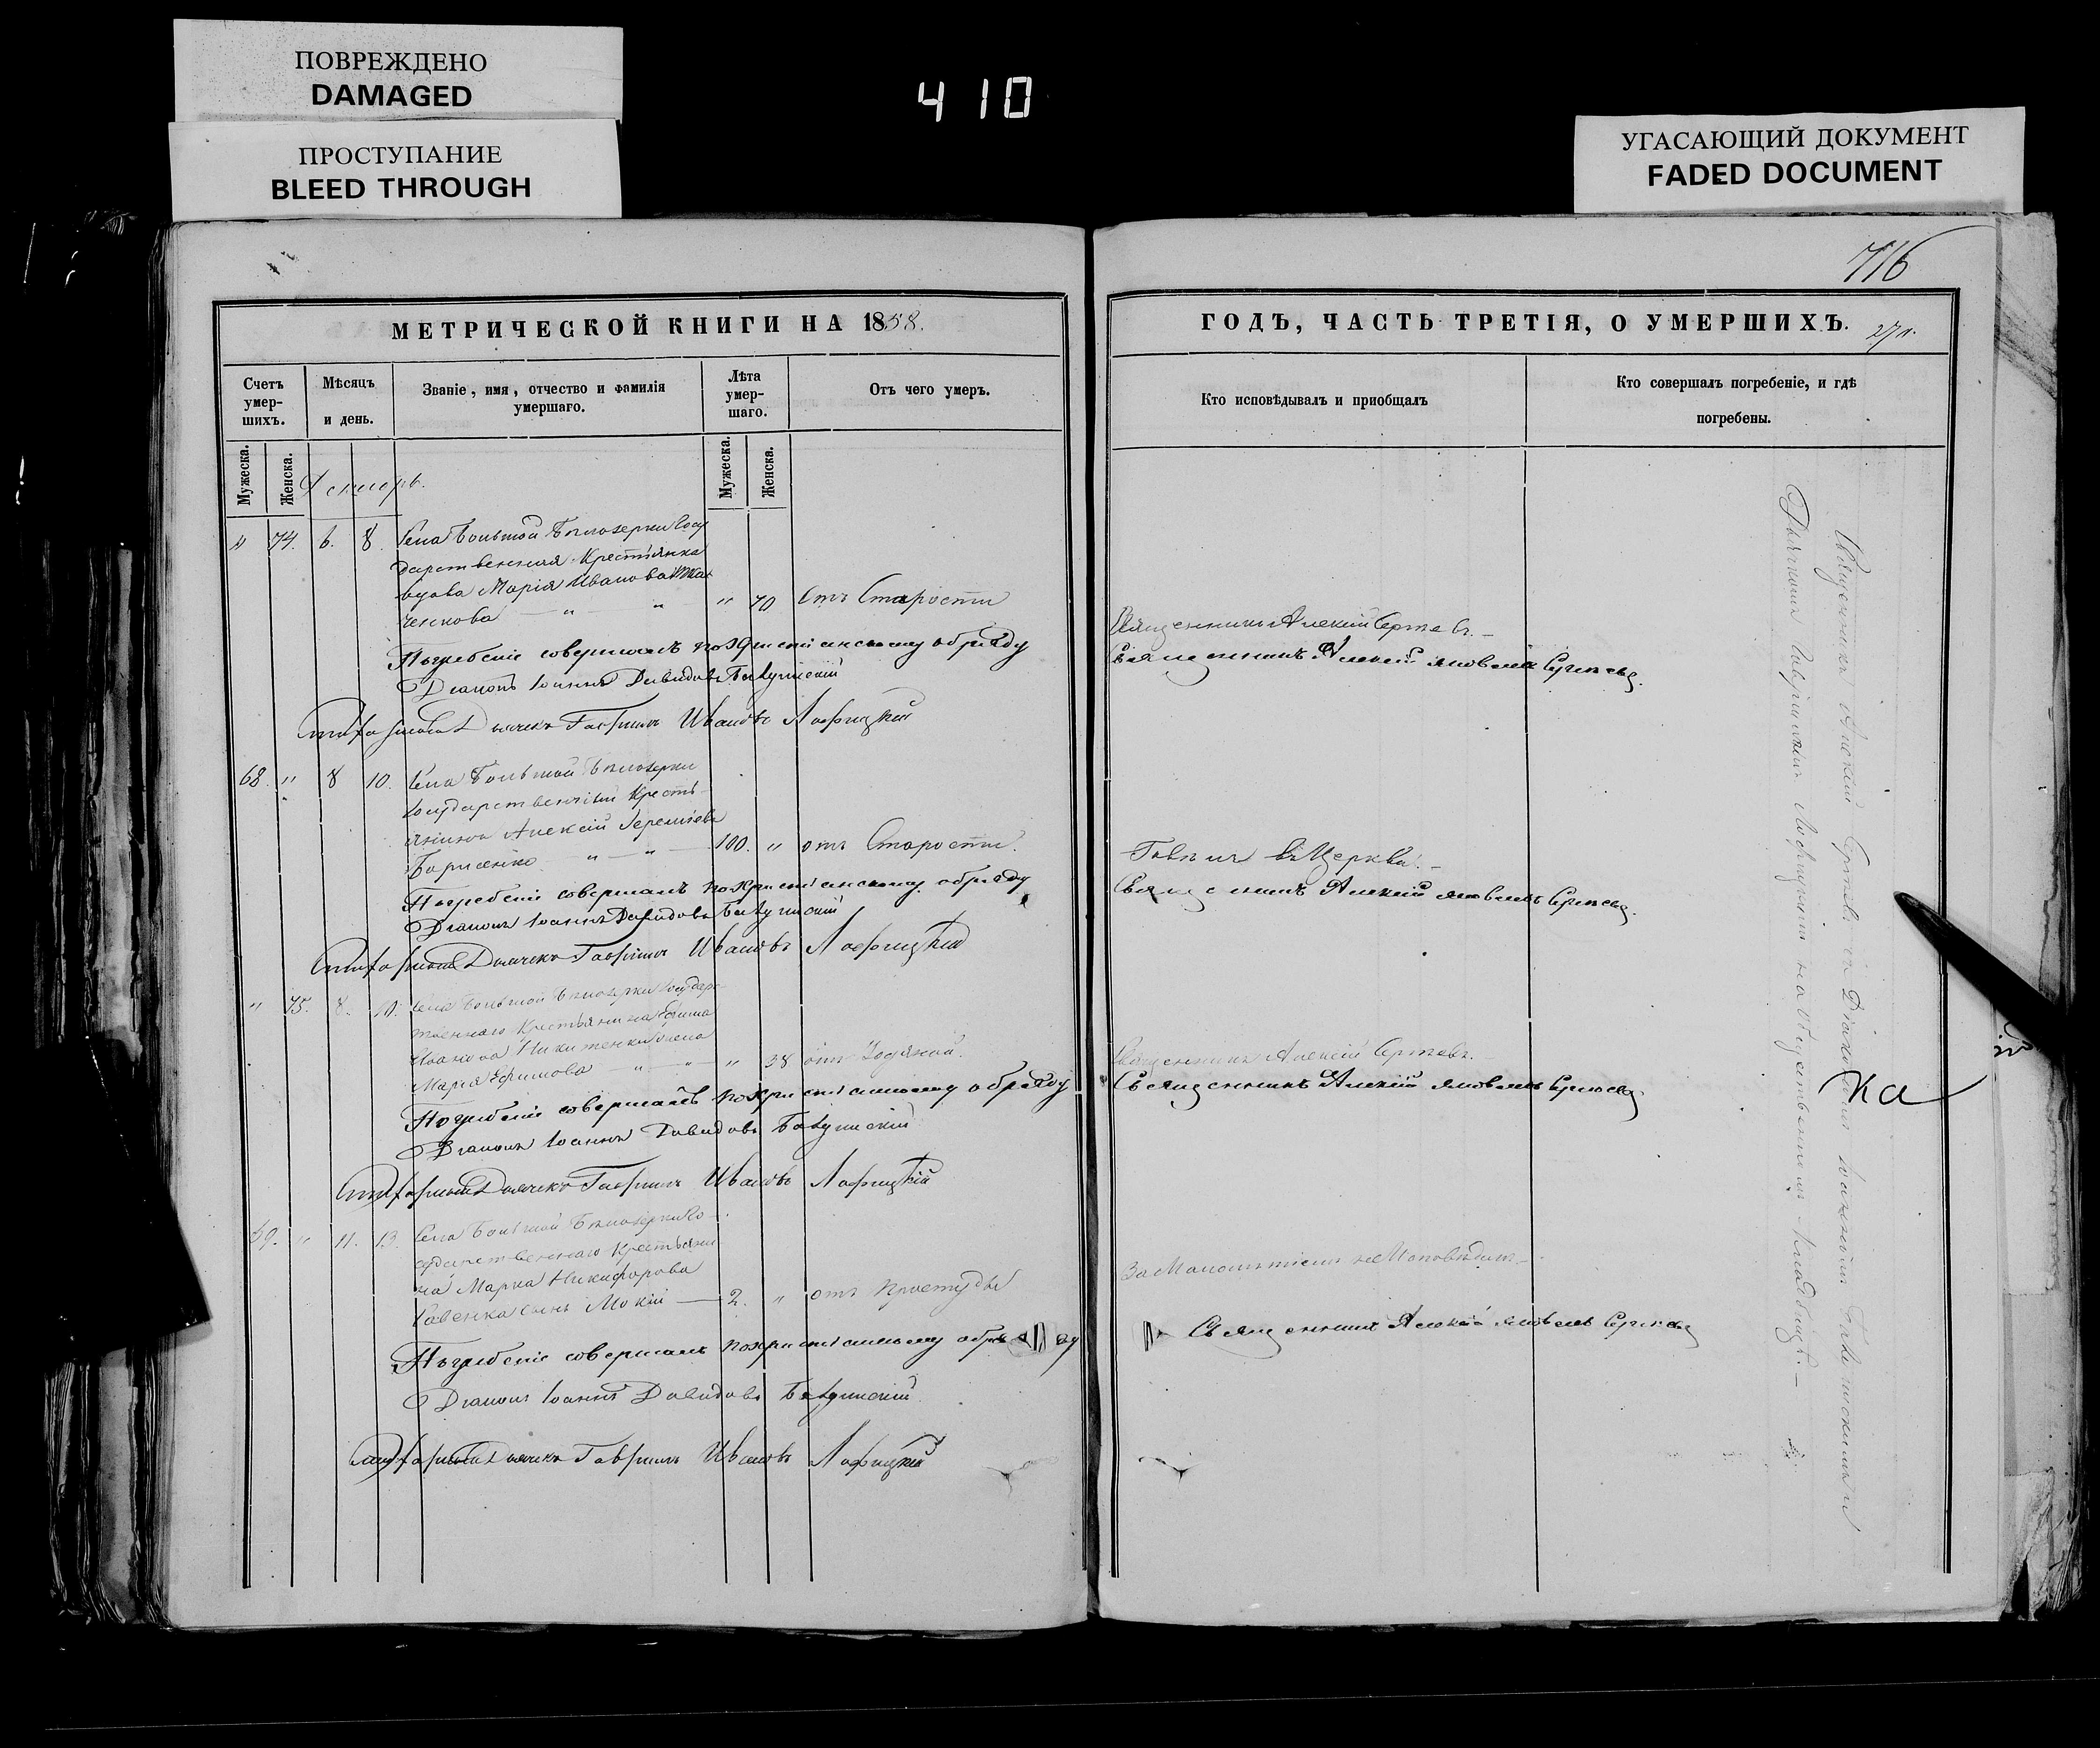 ПОВРЕЖДЕНО
DAMAGED
ПРОСТУПАНИЕ
BLEED THROUGH
410
УГАСАЮЩИЙ ДОКУМЕНТ
FADED DOCUMENT
716
МЕТРИЧЕСКОЙ КНИГИ НА 1858.
Счетъ умер- шихъ.
Мѣсяцъ и день.
Званіе, имя, отчество и фамилія умершаго.
Лѣта умер- шаго.
Отъ чего умеръ.
Мужеска.
Женска.
Мужеска.
Женска.
Декабрь.
" 74. 6. 8. Села Большой Бѣлозерки Госу
дарственная Крестьянка
вдова Марія Иванова
ченкова — " — " — " 70 Отъ Старости
Погребеніе совершалъ по христіанскому обряду
Діаконъ Іоаннъ Давидовъ
Дьячекъ Гавріилъ Ивановъ Лофицкій
68. " 8 10. Села Большой Бѣлозерки
Государственный Кресть-
янинъ Алексій Іереміевъ
Борисенко — " — " — 100. " отъ Старости.
Погребеніе совершалъ по христіанскому обряду
Діаконъ Іоаннъ Давидовъ
Дьячекъ Гавріилъ Ивановъ Лофицкій
" 75. 8. 10. Села Большой Бѣлозерки Государс-
твеннаго Крестьянина Ефима
Иванова Никитенки жена
Марія Ефимова " — " — " 38 отъ Водяной.
Погребеніе совершалъ по христіанскому обряду
Діаконъ Іоаннъ Давидовъ
Дьячекъ Гавріилъ Ивановъ Лофицкій
69. " 11. 13. Села Большой Бѣлозерки Го-
сударственнаго Крестьяни
на Марка Никифорова
Савенка сынъ Мокій — 2. " отъ простуды
Погребеніе совершалъ по христіанскому обряду
Діаконъ Іоаннъ Давидовъ
Дьячекъ Гавріилъ Ивановъ Лофицкій
ГОДЪ, ЧАСТЬ ТРЕТІЯ, О УМЕРШИХЪ.
Кто исповѣдывалъ и пріобщалъ
Кто совершалъ погребеніе, и гдѣ погребены.
Священникъ Алексій Сергѣевъ. —
Священникъ Алексій Яковлевъ Сергѣевъ.
Говѣлъ въ Церкви. —
Священникъ Алексій Яковлевъ Сергѣевъ.
Священникъ Алексій Сергѣевъ. —
Священникъ Алексій Яковлевъ Сергѣевъ
За Малолѣтіемъ не Исповѣданъ —
Священникъ Алексій Яковлевъ Сергѣевъ
Священникъ Алексій Сергѣевъ съ Діакономъ Іоанномъ
Дьячкомъ Гавріиломъ Лофицкимъ на общественномъ Кладбищѣ. —
ка